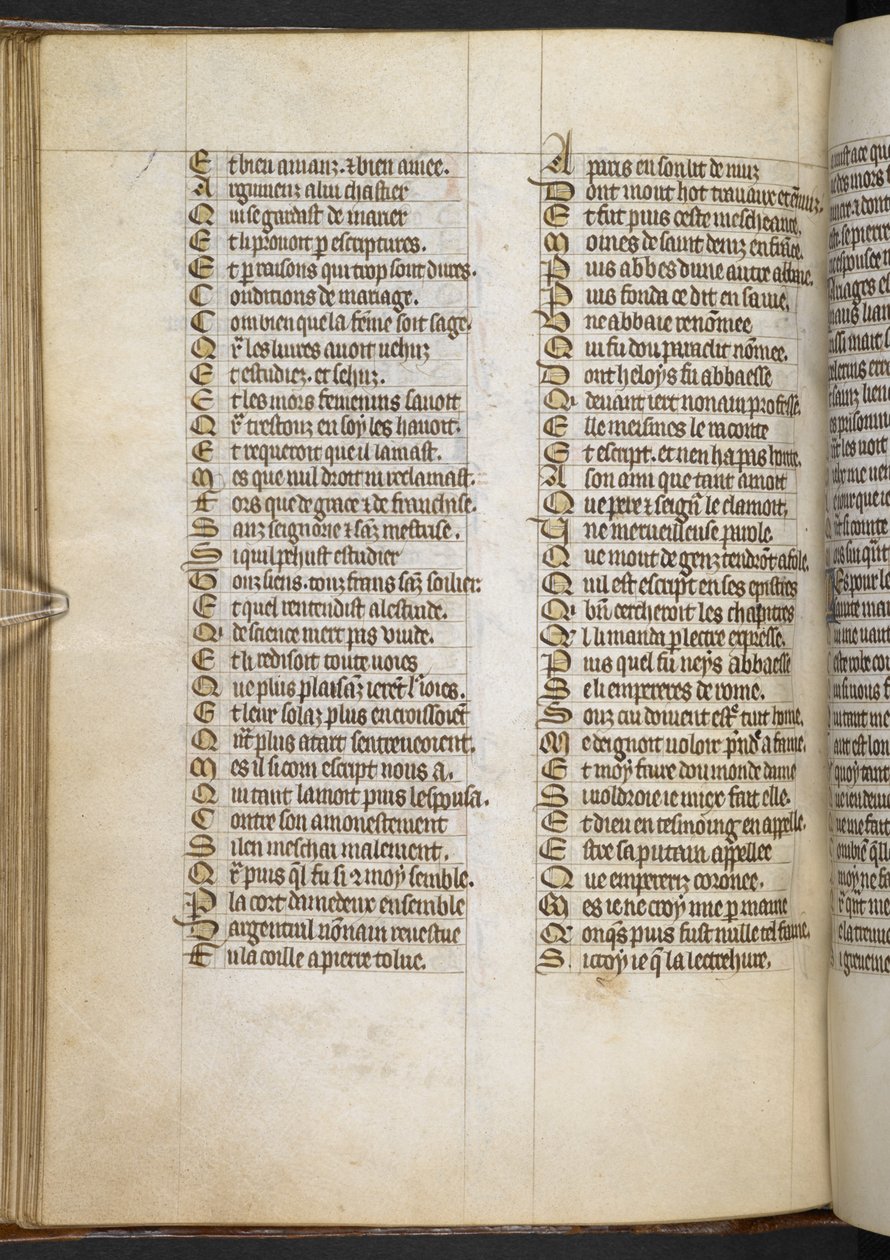 Et bien amanz. ⁊ bien amee.
Argumenz a lui chastier
Qui se gardast de marier
Et li prouoit ꝑ escriptures.
Et ꝑ raisons qui trop sont dures.
Conditions de mariage.
Combien que la fēme soit sage.
Qr̄ les liures auoit uehuz
Et estudiez. et sehuz.
Et les mors femenins sauoit
Qr̄ trestouz en soy les hauoit.
Et requeroit que il lamast.
Mes que nul droit ni reclamast.
Fors que de grace ⁊ de franchise.
Sanz seignorie ⁊ sāz mestrise.
Si quil pehust estudier
Touz siens. touz frans sāz soi lier.
Et quel rentendist a lestuide.
Qi de science niert pas vuide.
Et li redisoit toute uoies
Que plus plaisāz ierēt l̓ ioies.
Et leur solaz plus encroissoiēt
Qn̄t plus atart sentreueoient.
Mes il si com escript nous a.
Qui tant lamoit puis lespousa.
Contre son amonestement
Si len meschai malement.
Qr̄ puis q̄l fu si 9 moy semble.
P la cort damedeux ensemble
Dargentuil nōnain reuestue
Fu la coille a pierre tolue.
A paris en son lit de nuiz
Dont mout hot trauaux et ēnuiz.
Et fut puis ceste mescheance,
Moines de saint deniz en frāce.
Puis abbes dune autre abbaie.
Puis fonda ce dit en sa uie,
Vne abbaie renōmee
Qui fu dou paraclit nōmee.
Dont heloys fu abbaesse
Qi deuant iert nonain professe.
Elle meismes le raconte
Et escript. et nen ha pas honte.
A son ami que tant amoit
Que pere ⁊ seign̄ le clamoit,
Vne merueilleuse parole.
Que mout de genz tendrōt a fole.
Quil est escript en ses epistres
Qi bn̄ cercheroit les chapitres
Ql li manda ꝑ lectre expresse.
Puis quel fu neys abbaesse
Se li empereres de rome.
Souz cui doiuent estr̄ tuit home,
Me deignoit uoloir pn̄dr̄ a fame.
Et moy faire dou monde dame
Si uoldroie ie miex fait elle.
Et dieu en tesmoing en appelle.
Estre sa putain appellee
Que empereriz coronee.
Mes ie ne croy mie ꝑ mame
Qi onqs̄ puis fust nulle tel fame.
Si croy ie q̄ la lectrehure,